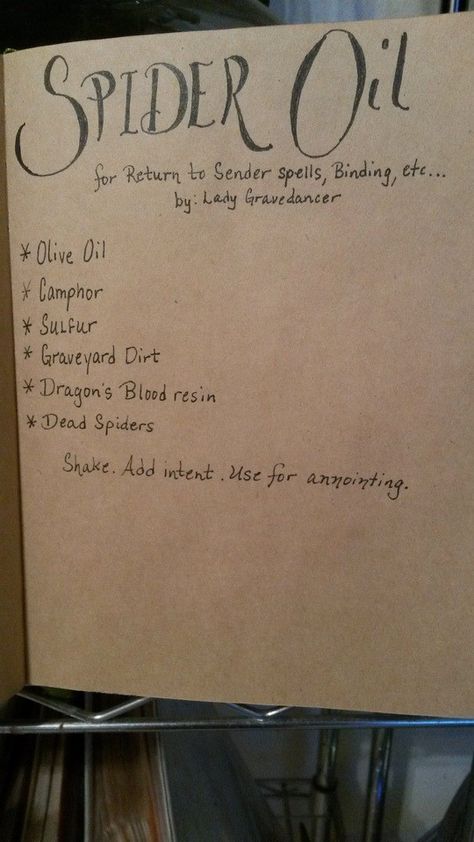 SPIDER Oil
for Return to Sender spells, Binding, etc...
by: Lady Gravedancer
* Olive Oil
* Camphor
* Sulfur
* Graveyard Dirt
* Dragon's Blood resin
* Dead Spiders
Shake. Add intent. Use for annointing.